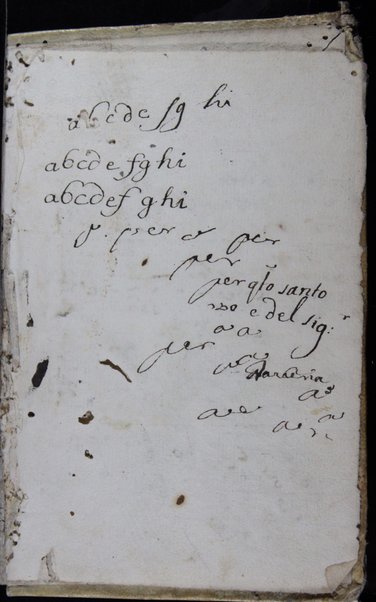 abcde fg hi
abcdefghi
abcdefghi
p. per per
per
per qto santo
e del sigr
a a
per
a
Barberia
a
a e
a e